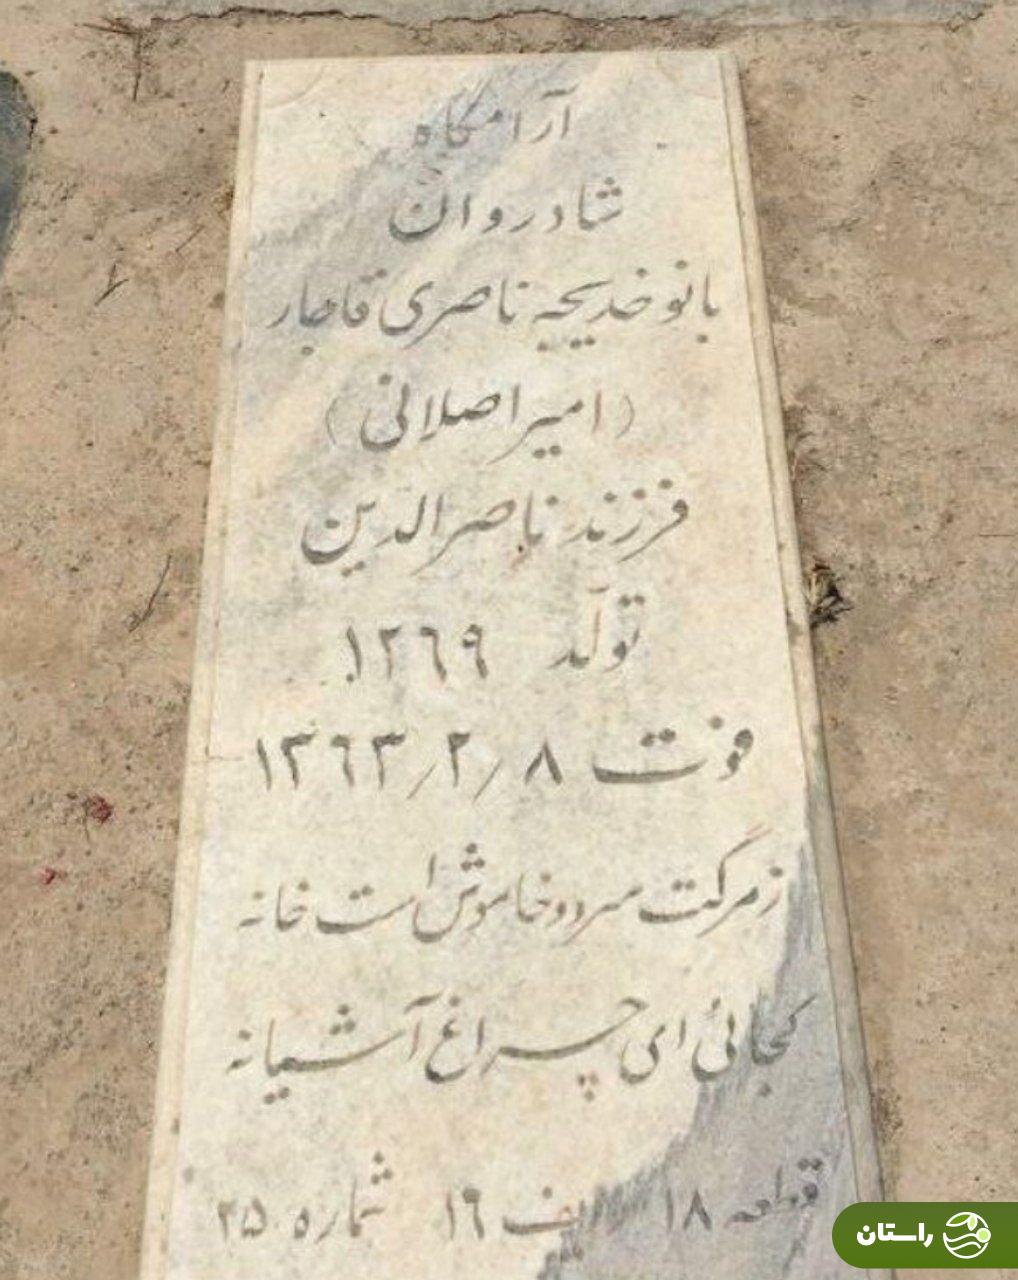 آرامگاه
شادروان
بانو خدیجه ناصری قاجار
(امیراصلانی)
فرزند ناصرالدین
تولّد ۱۲۶۹
فوت ۸/۲/۱۳۶۳
ز مرگت سرد و خاموش است خانه
کجائی ای چراغ آشیانه
قطعه ۱۸ ردیف ۱۶ شماره ۲۵
راستان